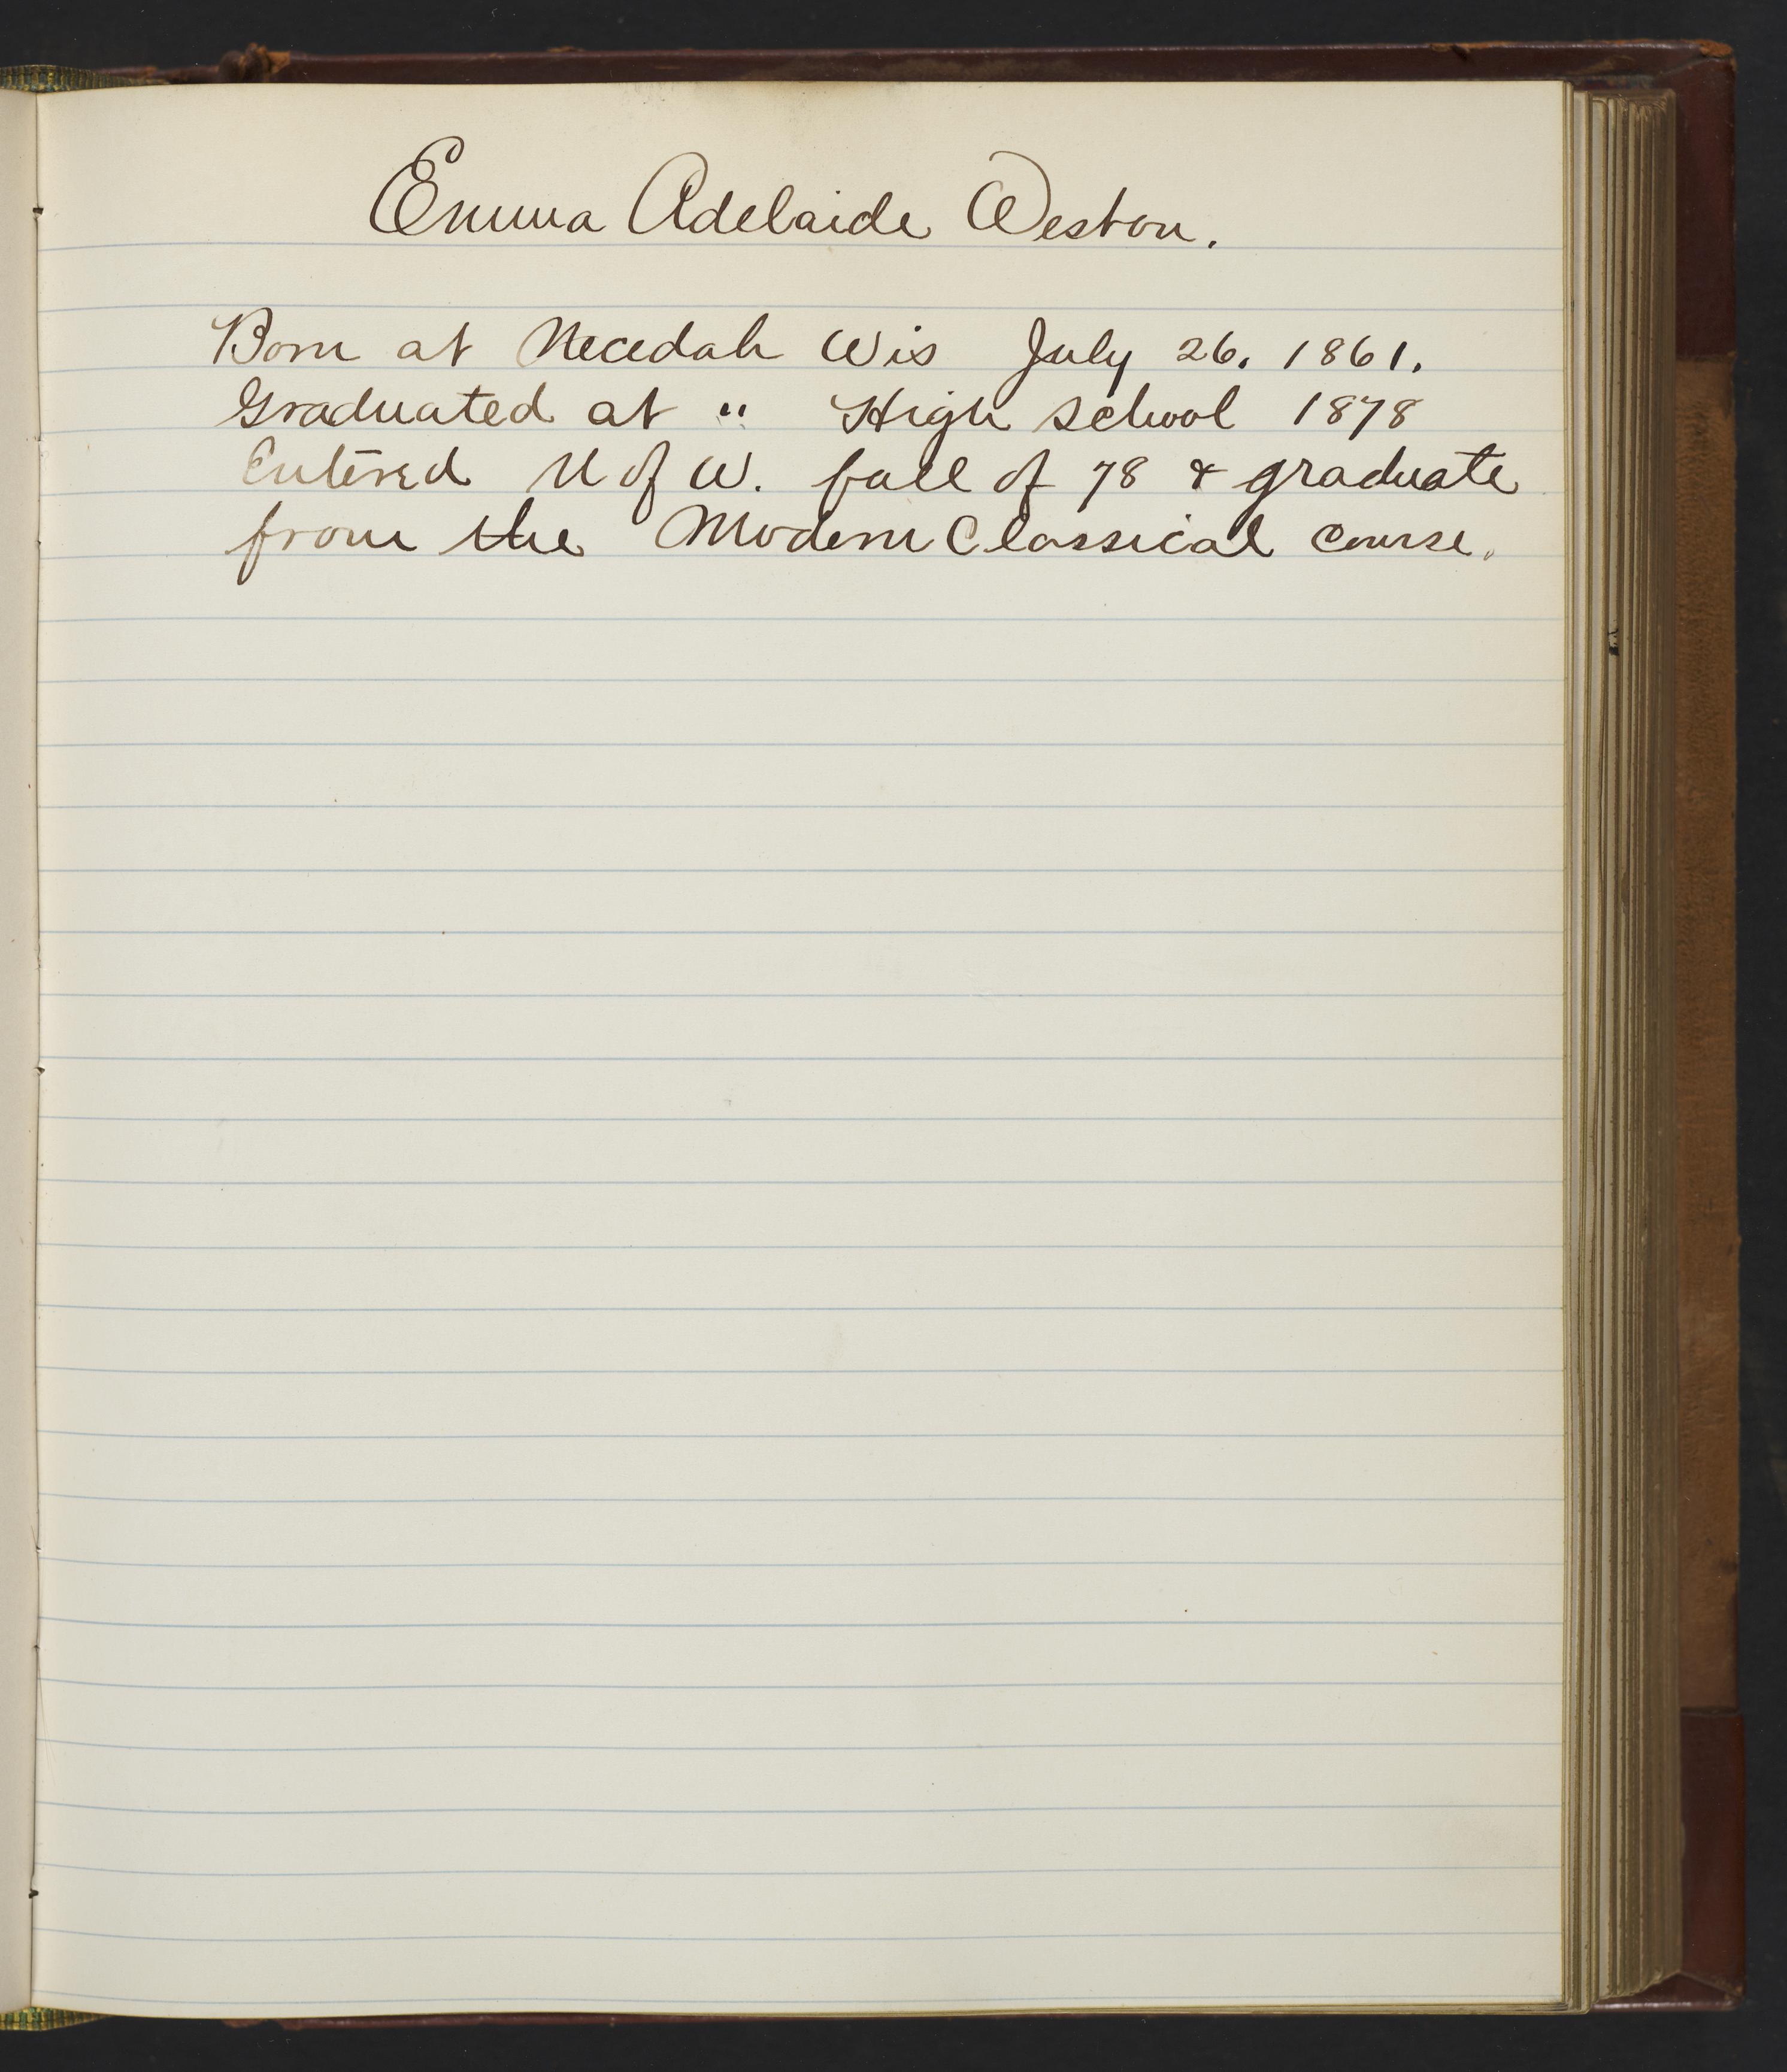 Emma Adelaide Weston.
Born at Necedah Wis July 26. 1861.
Graduated at " High School 1878
Entered U of W. fall of 78 & graduate
from the Modern Classical course.